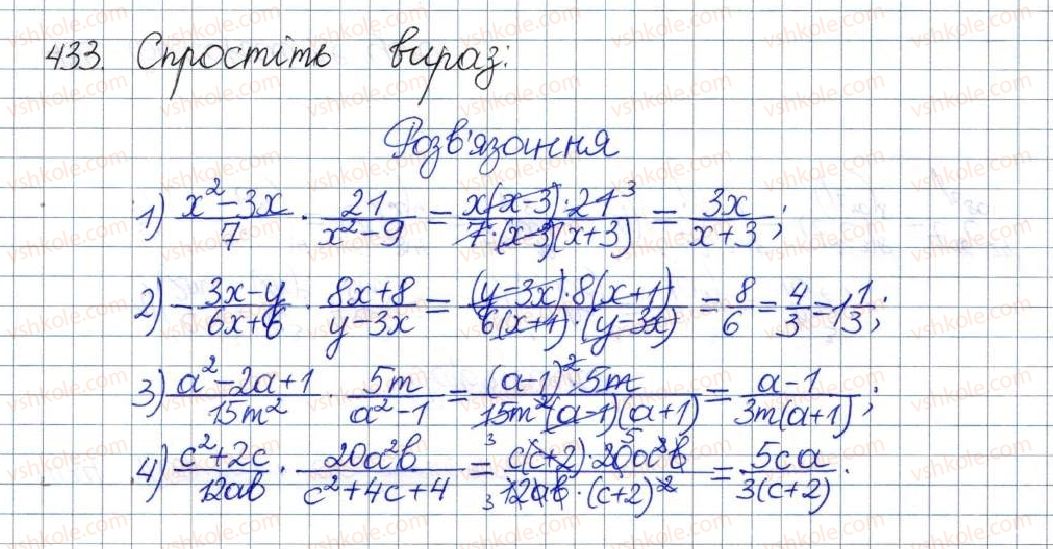 433. Спростіть вираз:
Розв'язання
1) (x² − 3x)/7 · 21/(x² − 9) = (x(x−3) · 21 ³)/(7 · (x−3)(x+3)) = 3x/(x+3);
2) − (3x−y)/(6x+6) · (8x+8)/(y−3x) = ((y−3x) · 8(x+1))/(6(x+1) · (y−3x)) = 8/6 = 4/3 = 1 1/3;
3) (a² − 2a + 1)/(15m²) · 5m/(a² − 1) = ((a−1)² · 5m)/(15m²(a−1)(a+1)) = (a−1)/(3m(a+1));
4) (c² + 2c)/(12ab) · (20a²b)/(c² + 4c + 4) = (c(c+2) · 20a²b)/(12ab · (c+2)²) = 5ca/(3(c+2)).
vshkole.com